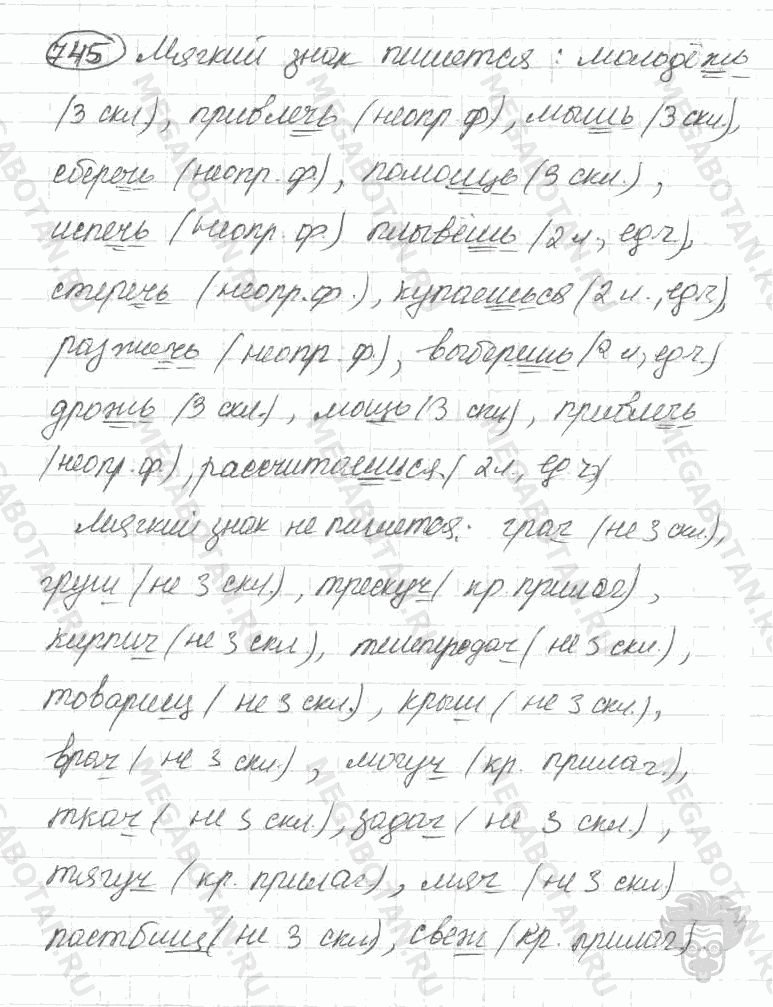 745 Мягкий знак пишется: молодёжь
(3 скл.), привлечь (неопр ф), мышь (3 скл.),
сберечь (неопр. ф.), помощь (3 скл.),
испечь (неопр. ф.) плывёшь (2 л., ед ч),
стеречь (неопр. ф.), купаешься (2 л., ед ч),
разжечь (неопр. ф.), выберешь (2 л., ед ч.)
дрожь (3 скл.), мощь (3 скл), привлечь
(неопр. ф.), рассчитаешься (2 л., ед ч)
Мягкий знак не пишется: грач (не 3 скл.),
груш (не 3 скл.), трескуч (кр. прилаг),
кирпич (не 3 скл), телепередач (не 3 скл.),
товарищ (не 3 скл.), крыш (не 3 скл.),
врач (не 3 скл.), могуч (кр. прилаг.),
ткач (не 3 скл.), задач (не 3 скл.),
тягуч (кр. прилаг), мяч (не 3 скл.)
пастбищ (не 3 скл.), свеж (кр. прилаг.).
MEGABOTAN.RU